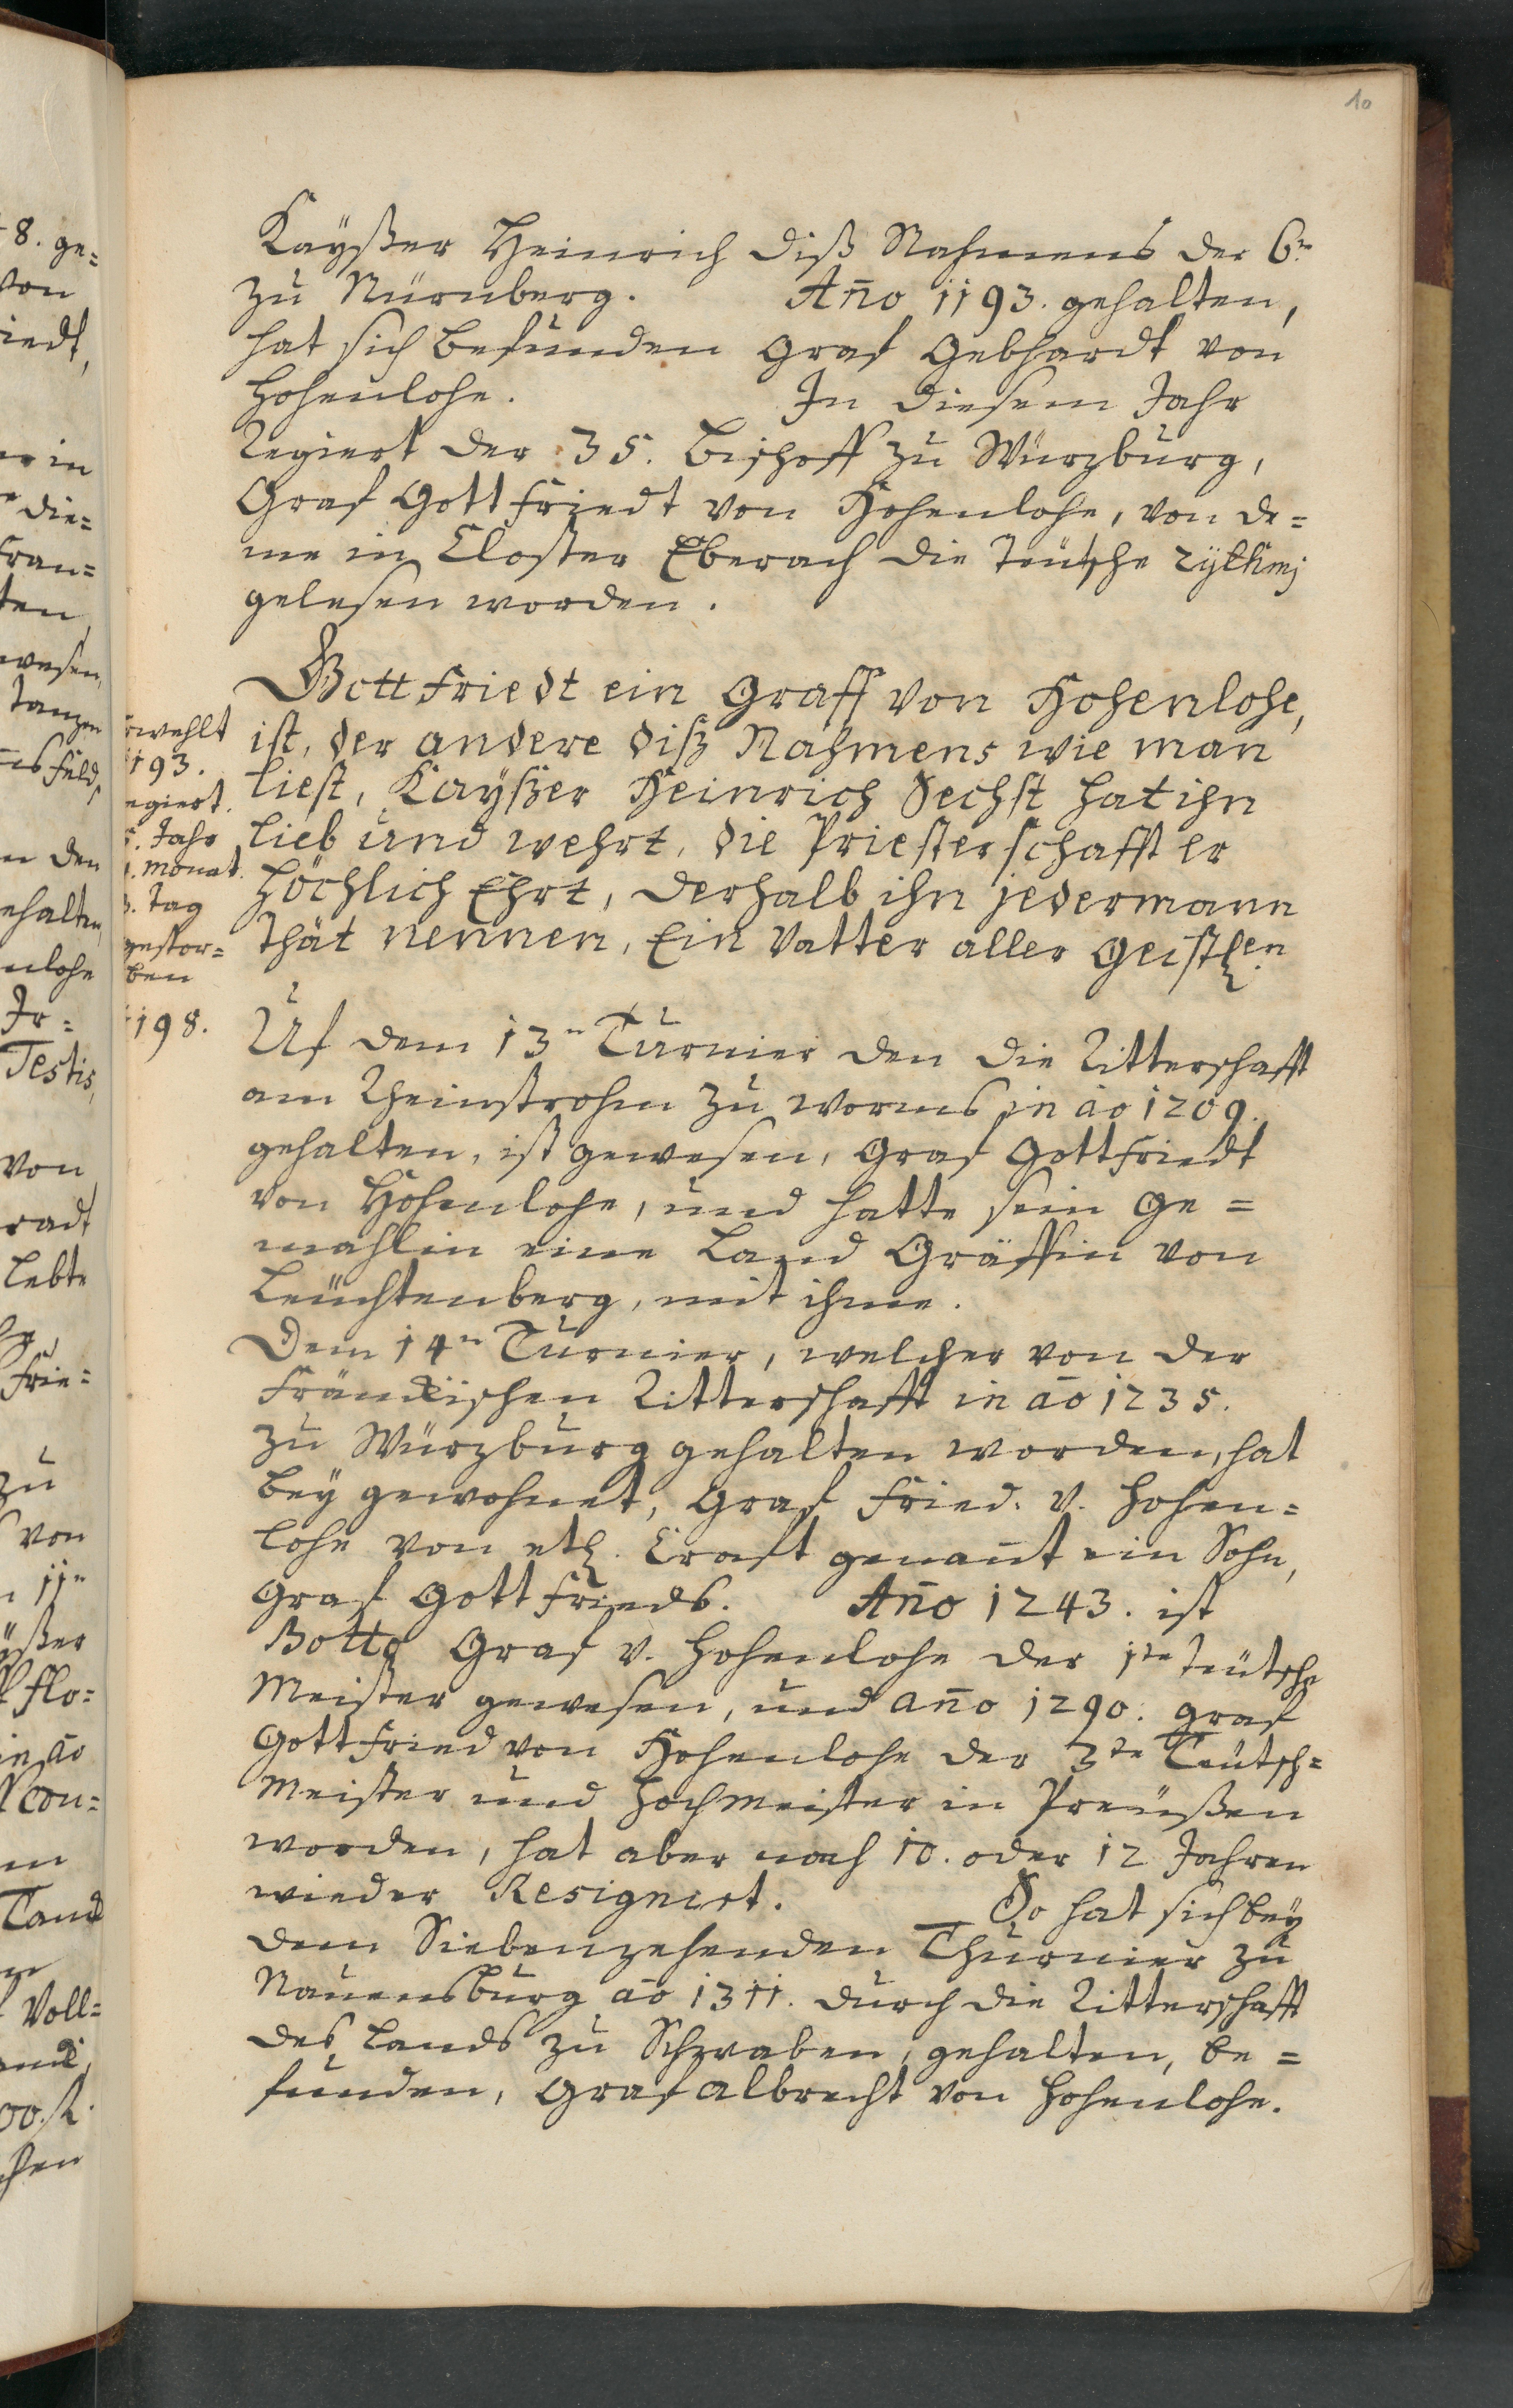 10
Kayßer Heinrich diß Nahmens der 6.n
zu Nürnberg. Año 1193. gehalten,
hat sich befunden Graf Gebhardt von
Hohenlohe. In diesem Jahr
Regiert der 35. Bischoff zu Würzburg,
Graf Gottfriedt von Hohenlohe, von de=
me in Closter Eberach die Teutsche rythmj
gelesen worden.
Gottfriedt ein Graff von Hohenlohe,
ist, der andere diß Nahmens wie man
liest, Kayßer Heinrich Sechst hat ihn
lieb und wehrt, die Priesterschafft er
höchlich Ehrt, derhalb ihn jedermann
thät nennen, Ein Vatter aller Geistl.en
rwehlt
1193.
egiert.
5. Jahr
. Monat.
. Tag
gestor=
ben
1198.
Uf dem 13.n Turnier den die Ritterschafft
am Rheinstrohm zu Worms in ao 1209.
gehalten, ist gewesen, Graf Gottfriedt
von Hohenlohe, und hatte sein Ge=
mahlin eine Land Gräffin von
Leuchtenberg, mit ihme.
Dem 14.n Turnier, welcher von der
Fränckischen Ritterschafft in ao 1235.
zu Würzburg gehalten worden, hat
bey gewohnet, Graf Fried. v. Hohen=
lohe von etl. Craft genannt ein Sohn,
Graf Gottfrieds. Año 1243. ist
Botto Graf v. Hohenlohe der 1te Teutsche
Meister gewesen, und año 1290. Graf
Gottfried von Hohenlohe der 3te Teutsch=
Meister und Hochmeister in Preußen
worden, hat aber nach 10. oder 12 Jahren
wieder Resigniert. So hat sich bey
dem Siebenzehenden Thurnier zu
Rauensburg ao 1311. durch die Ritterschafft
des Lands zu Schwaben, gehalten, be=
funden, Graf Albrecht von Hohenlohe.